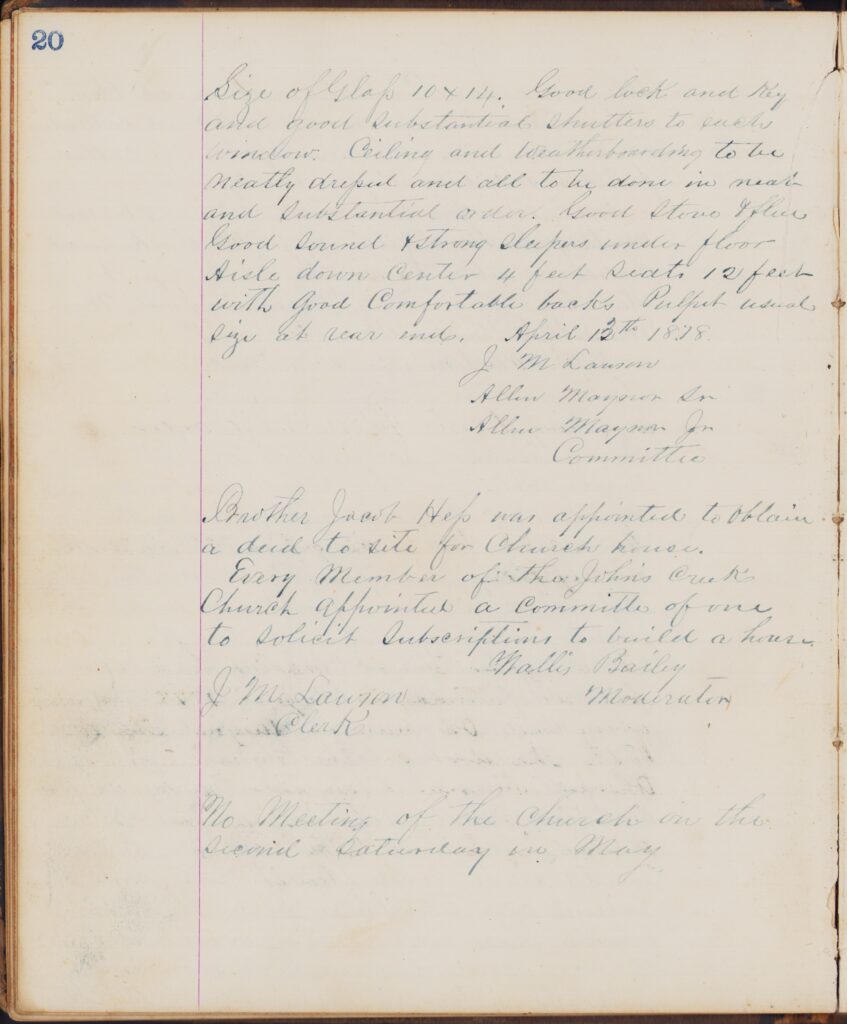 20
Size of Glass 10 x 14. Good lock and key
and good substantial shutters to each
window. Ceiling and Weatherboarding to be
neatly dressed and all to be done in neat
and substantial order. Good stove & flue
Good sound & strong sleepers under floor
Aisle down Center 4 feet seats 12 feet
with good Comfortable backs Pulpit usual
size at rear end. April 13th 1878.
J M Lawson
Allen Maynor Sr
Allen Maynor Jr
Committee
Brother Jacob Hess was appointed to obtain
a deed to site for Church house.
Every Member of the Johns Creek
Church appointed a committe of one
to solicit subscriptions to build a house.
Wallis Bailey
J M Lawson Moderator
Clerk
No Meeting of the Church on the
second Saturday in May